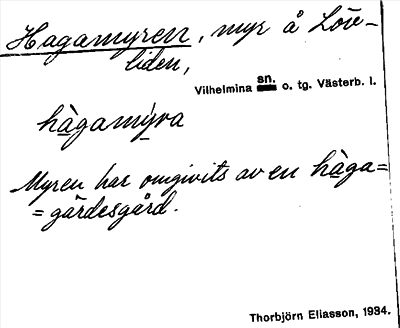 Hagamyren, myr å Löv-
liden,
Vilhelmina sn. o. tg. Västerb. l.
hàgamýra
Myren har omgivits av en hàga=
=gärdesgård.
Thorbjörn Eliasson, 1934.